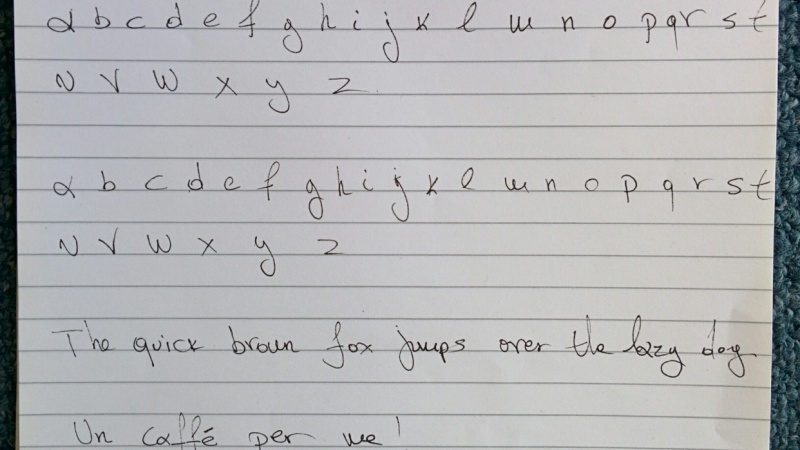 a b c d e f g h i j k l m n o p q r s t
u v w x y z
a b c d e f g h i j k l m n o p q r s t
u v w x y z
The quick brown fox jumps over the lazy dog
Un caffé per me!